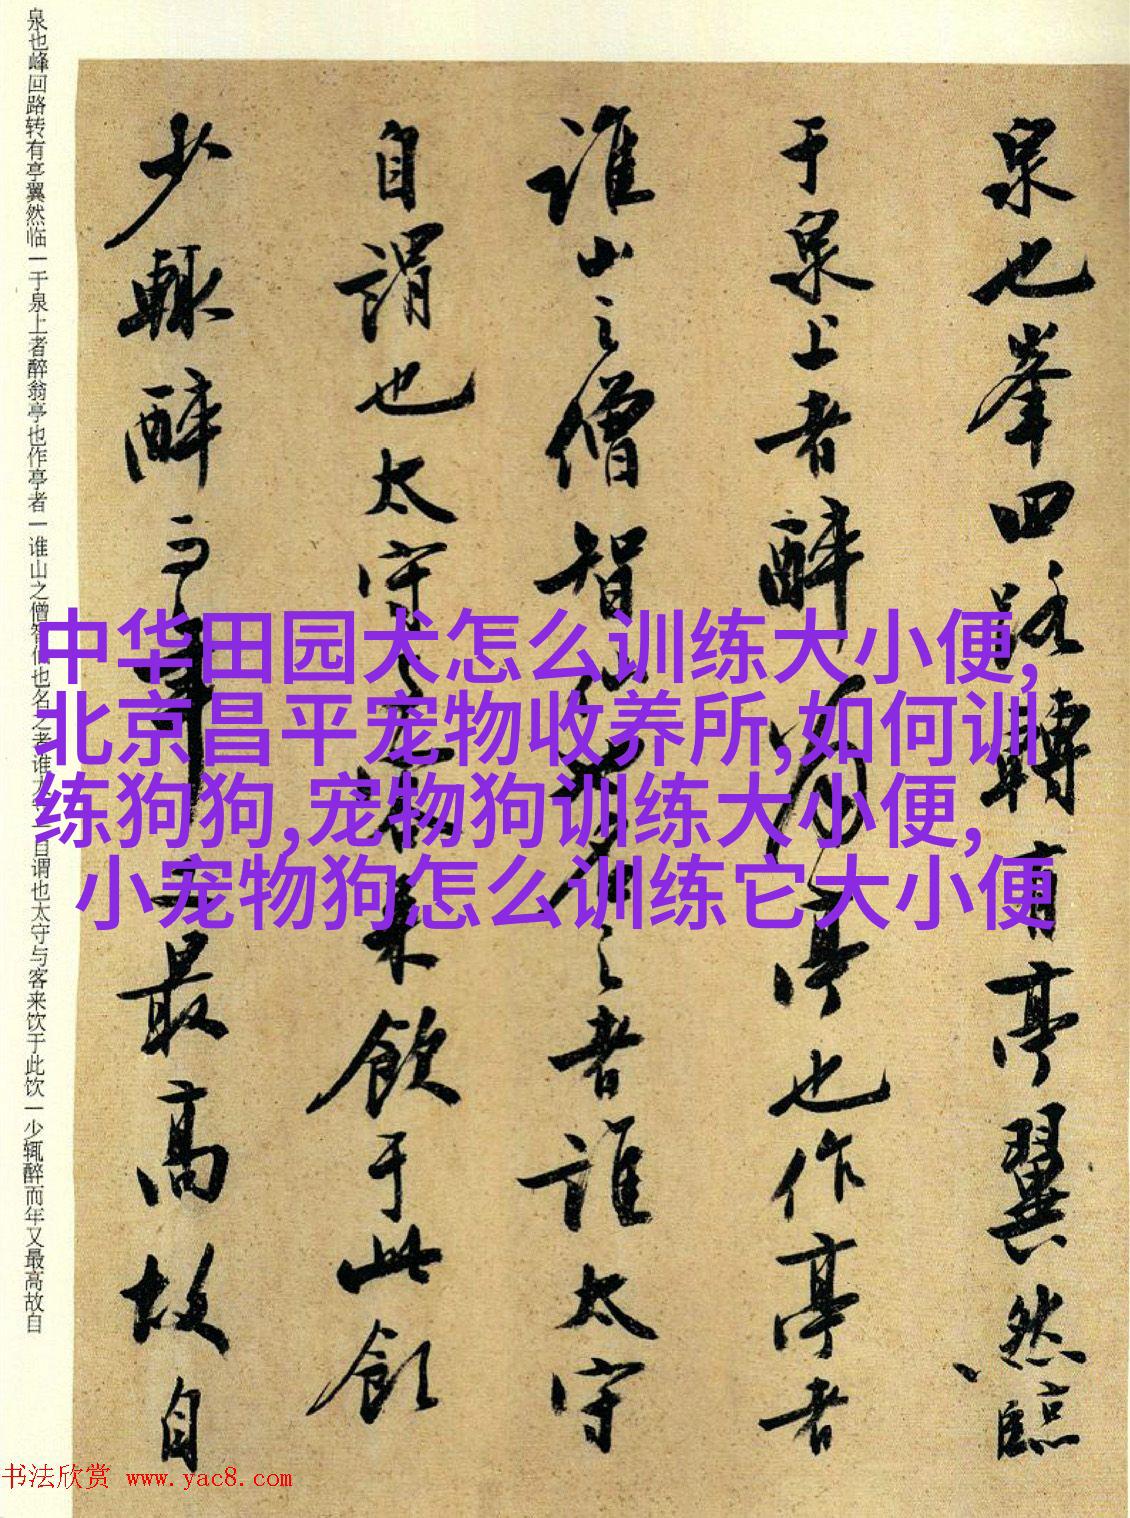 泉也峯回路轉有亭翼然臨
于泉上者醉翁亭也作亭者
誰山之僧智仙也名之者誰太守
自謂也太守与客来飲于此飲
少輒醉而年又最高故自
泉也峰回路转有亭翼然临一于泉上者醉翁亭也作亭者一谁山之僧智仙也名之者谁太守一自谓也太守与客来饮于此饮一少辄醉而年又最高故自
中华田园犬怎么训练大小便,
北京昌平宠物收养所,如何训
练狗狗,宠物狗训练大小便,
小宠物狗怎么训练它大小便
书法欣赏 www.yac8.com